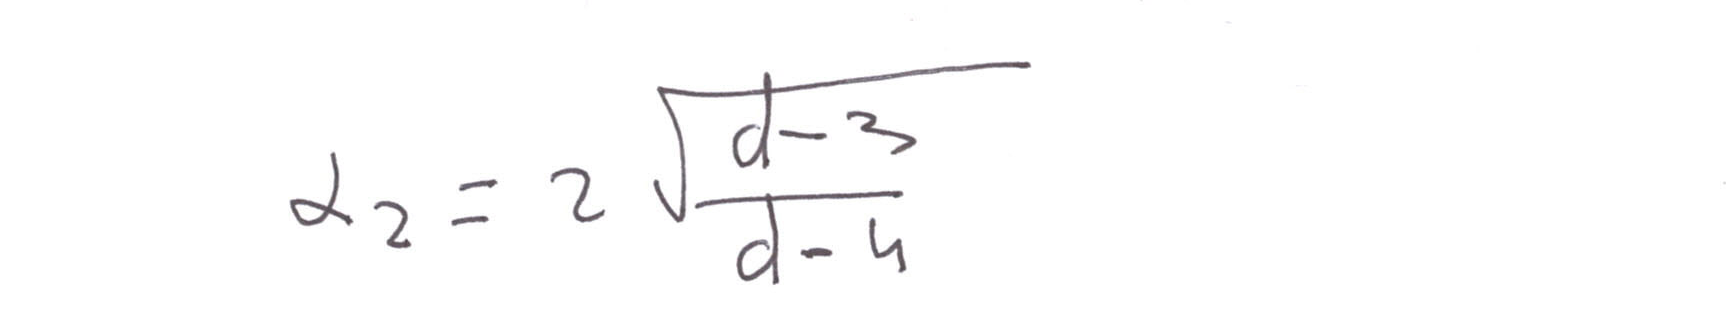 α₂ = 2 √((d-3)/(d-4))